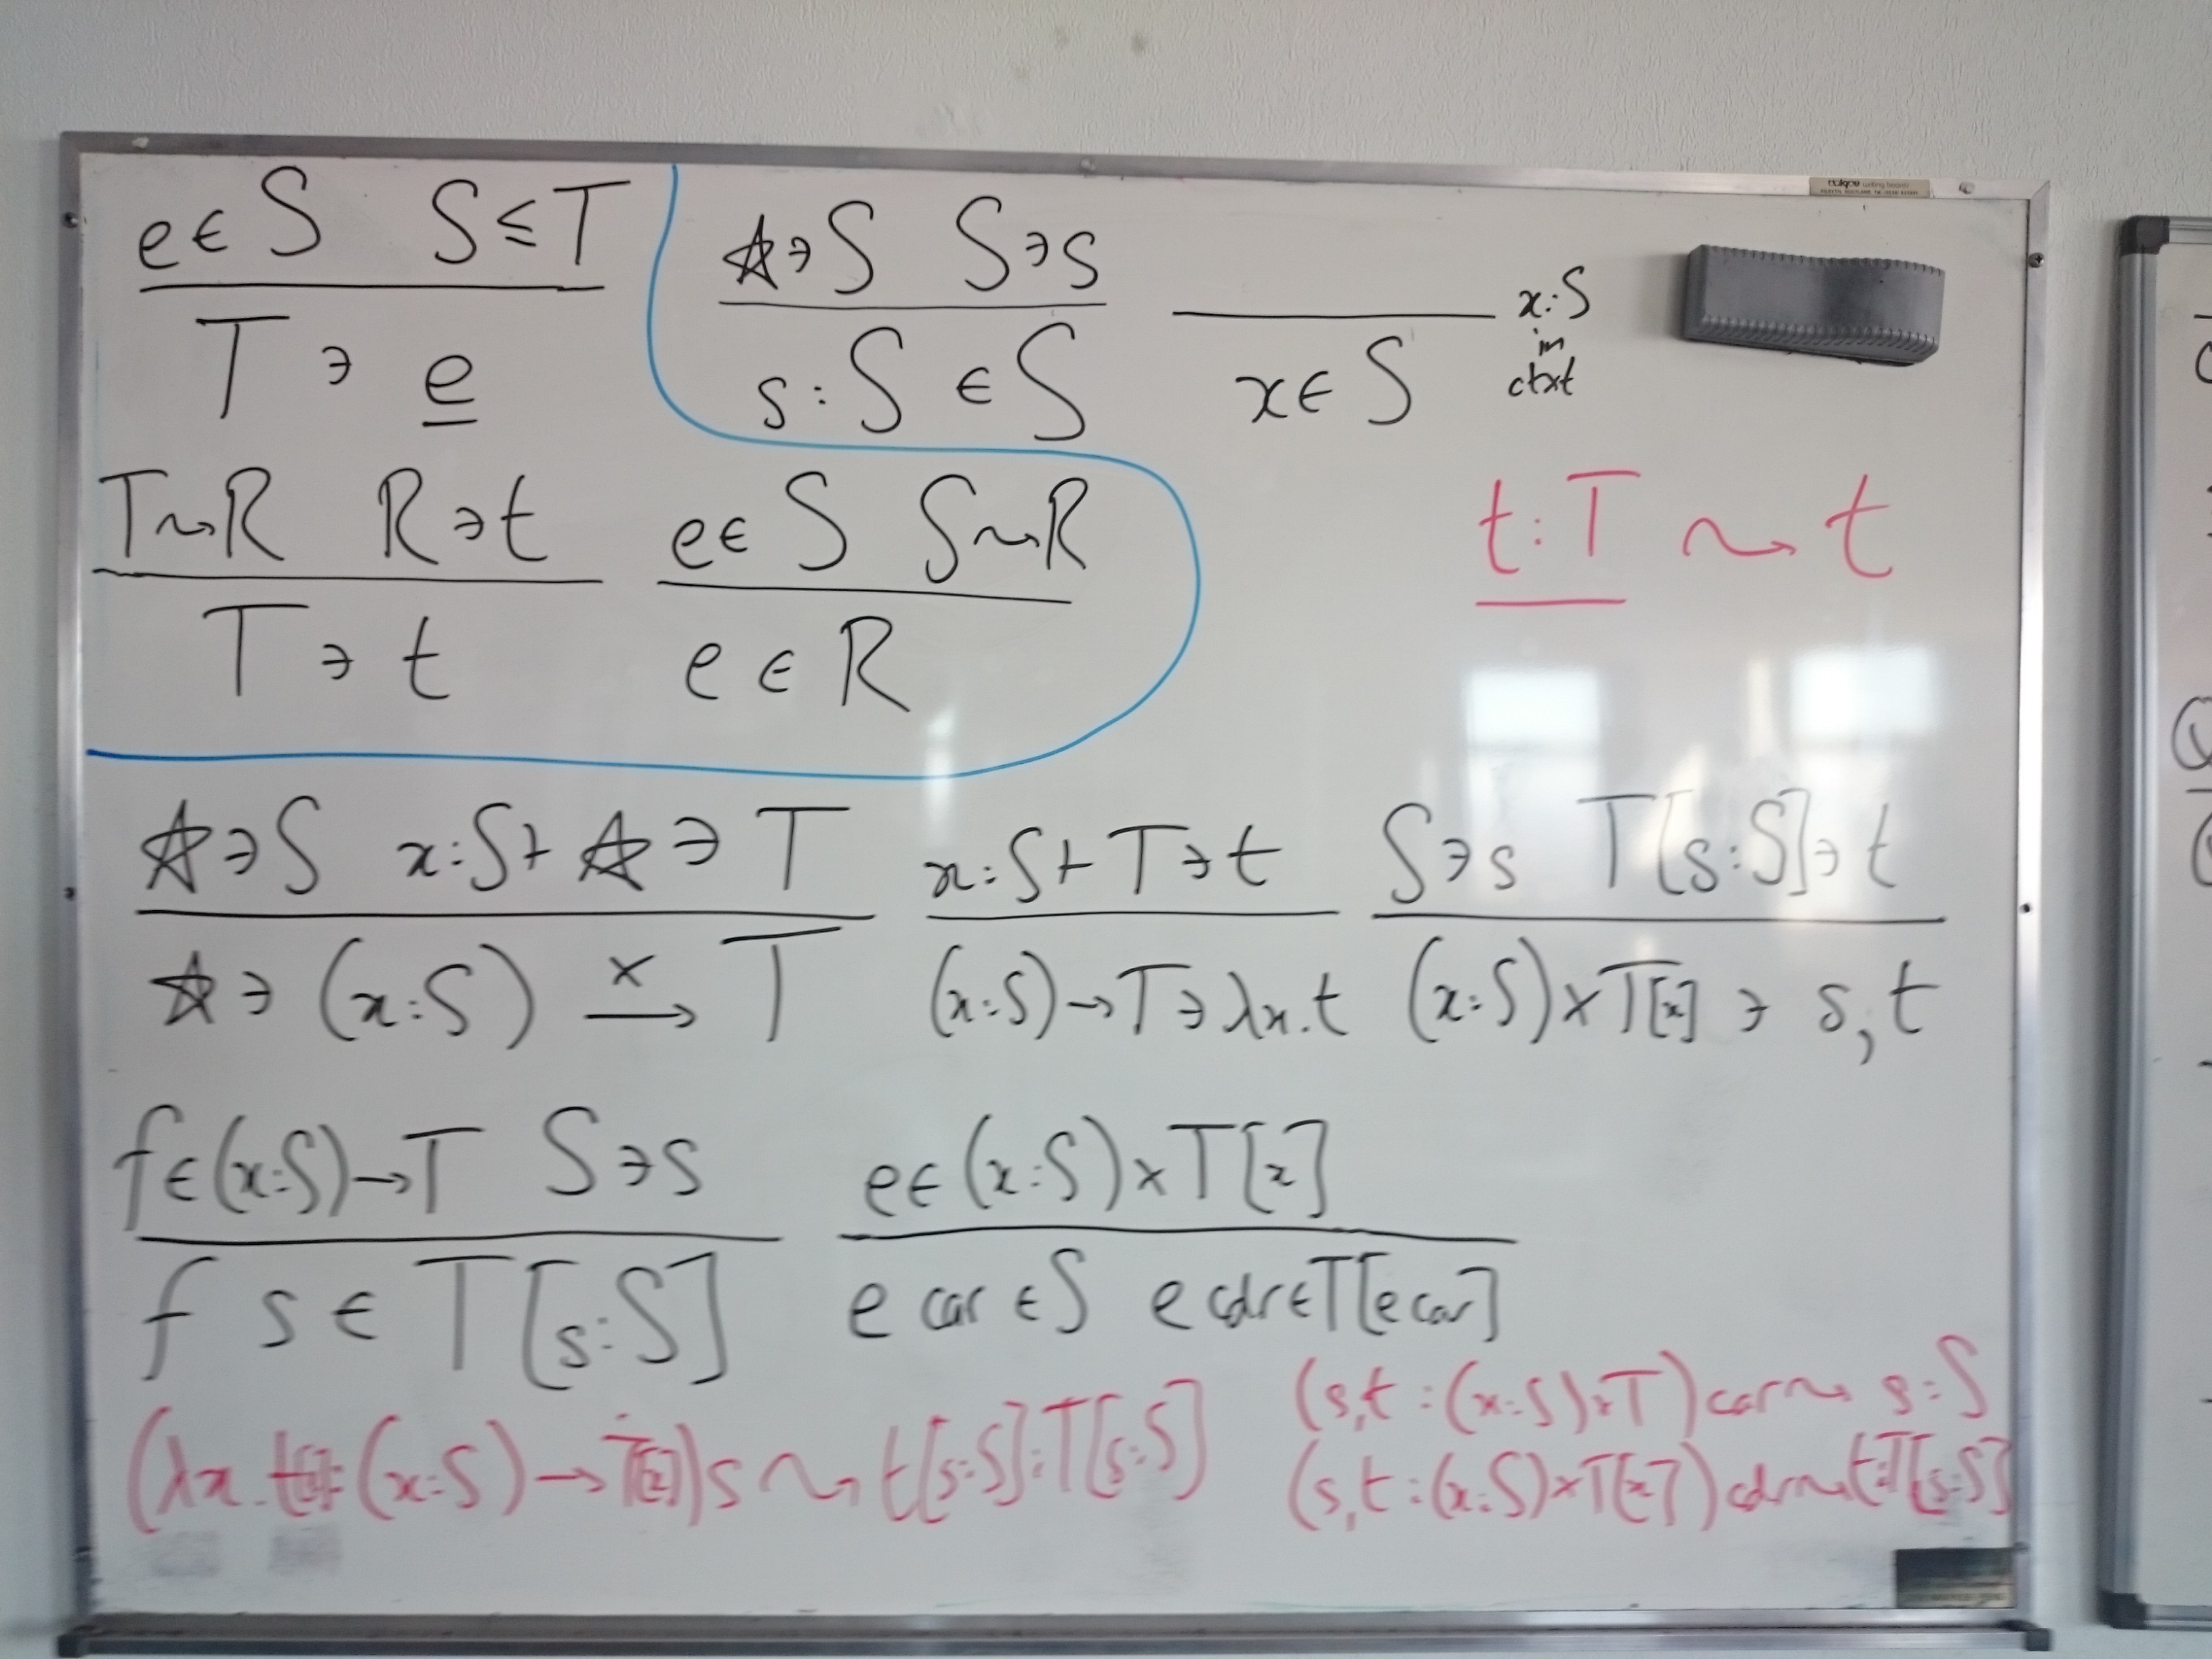 e ∈ S   S ≤ T
T ∋ e
☆ ∋ S   S ∋ s
s : S ∈ S
x : S
in
ctxt
x ∈ S
T ⇝ R   R ∋ t
T ∋ t
e ∈ S   S ⇝ R
e ∈ R
t : T ⇝ t
☆ ∋ S   x : S ⊢ ☆ ∋ T
☆ ∋ (x : S) × → T
x : S ⊢ T ∋ t
(x : S) → T ∋ λx. t
S ∋ s   T[s : S] ∋ t
(x : S) × T[x] ∋ s, t
f ∈ (x : S) → T   S ∋ s
f s ∈ T[s : S]
e ∈ (x : S) × T[x]
e car ∈ S   e cdr ∈ T[e car]
(λx. t[x] : (x : S) → T[x]) s ⇝ t[s : S] : T[s : S]
(s, t : (x : S) × T) car ⇝ s : S
(s, t : (x : S) × T[x]) cdr ⇝ t : T[s : S]